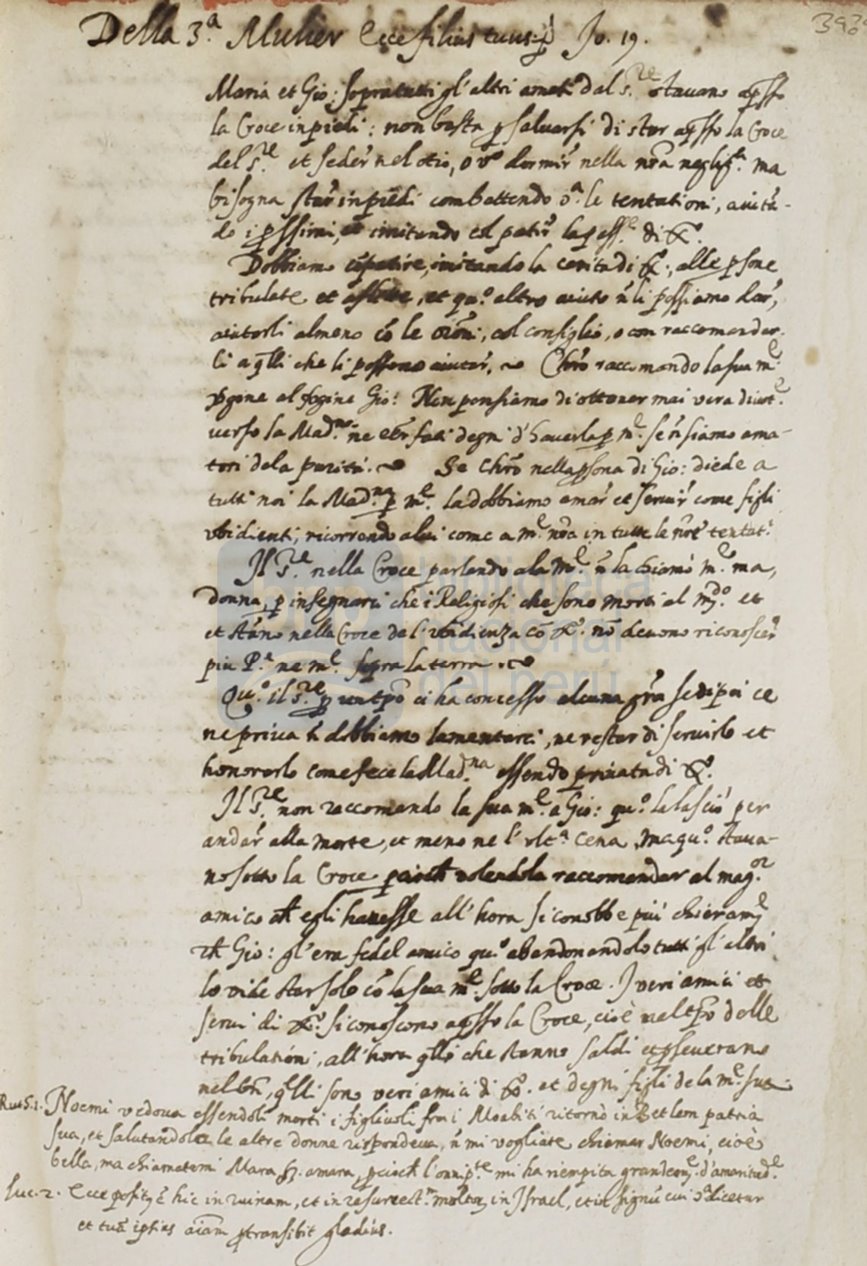 Della 3.ª Mulier Ecce filius tuus. Jo. 19.
393
Maria et Gio: sopra tutti gl'altri amati dal S.re stavano apsso
la Croce in piedi: non basta p salvarsi di star apsso la Croce
del S.re et seder nel otio, o dormir nella nra neglig.ª ma
bisogna star in piedi combattendo le tentationi, aiutã-
do i pssimi, et imitando col patir la pass. di X.º
Dobbiamo cõpatire, imitando la carita di X.º, alle psone
tribulate et afflitte, et qn.º altro aiuto ñ li possiamo dar,
aiutarli almeno cõ le orõni, col consiglio, o con raccomandar-
li a qlli che li possono aiutar. Chro raccomando la sua m.e
Vgine al Vgine Gio: Non pensiamo di ottener mai vera divot.e
verso la Mad.na ne esser fati degni d'haverla p m.e se ñ siamo ama-
tori dela purità. Se Chro nella psona di Gio: diede a
tutti noi la Mad.na p m.e la dobbiamo amar et servir come figli
ubidienti, ricorrendo a lei come a m.e nra in tutte le nre tentat.i
Il S.re nella Croce parlando a la M.e ñ la chiamò m.e ma,
donna, p insegnarci che i Religiosi che sono morti al mdo. et
et stãno nella Croce de l'ubidienza cõ X.º nõ devono riconoscer
piu P.e ne m.e sopra la terra.
Qn.º il S.re p un tpo ci ha concesso alcuna gra se di poi ce
ne priva ñ dobbiamo lamentarci, ne restar di servirlo et
honorarlo come fece la Mad.na essendo privata di X.º
Il S.re non raccomando la sua m.e a Gio: qn.º la lasciò per
andar alla morte, et meno ne l'ult.ª Cena, ma qn.º stava-
no sotto la Croce pcioch volendola raccomandar al mag.or
amico ch egli havesse all'hora si conobbe più chiaram.e
ch Gio: gl'era fedel amico qn.º abandonandolo tutti gl'altri
lo vide star solo cõ la sua m.e sotto la Croce. I veri amici et
servi di X.º si conoscono apsso la Croce, cioè nel tpo delle
tribulationi, all'hora qlli che stanno saldi et pseverano
nel bñ, qlli sono veri amici di X.º et degni figli de la m.e sua
Rut. 1. Noemi vedova essendoli morti i figliuoli fra i Moabiti ritornò in Betlem patria
sua, et salutandola le altre donne rispondeva, ñ mi vogliate chiamar Noemi, cioè
bella, ma chiamatemi Mara amara, pcioch l'onnip.te mi ha riempita grandem.e d'amaritud.e
Luc. 2. Ecce positus ẽ hic in ruinam, et in resurrect.m moltor in Israel, et in signũ cui cõtradicetur
et tuã ipsius aiam ptransibit gladius.